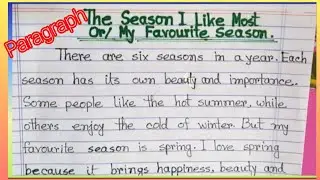 Paragraph
The Season I Like Most
Or/ My Favourite Season.
There are six seasons in a year. Each
season has its own beauty and importance.
Some people like the hot summer, while
others enjoy the cold of winter. But my
favourite season is spring. I love spring
because it brings happiness, beauty and